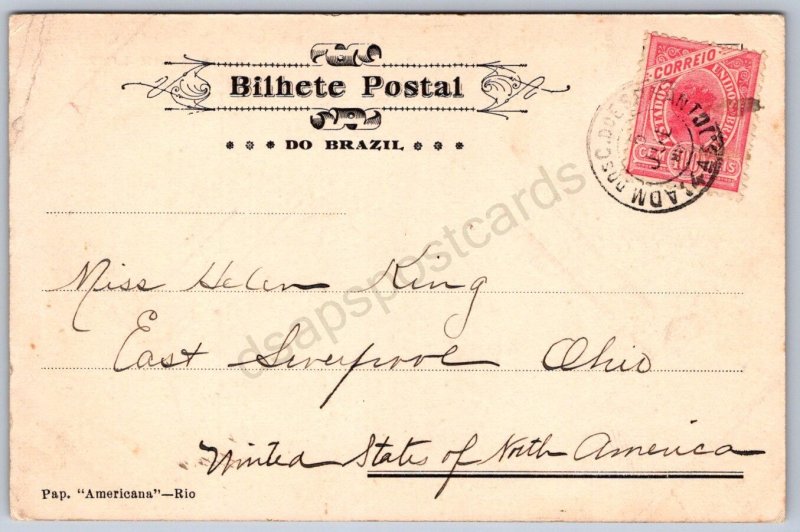 Bilhete Postal
DO BRAZIL
CORREIO
Miss Helen King
East Liverpool Ohio
United States of North America
Pap. "Americana"—Rio
dsapspostcards